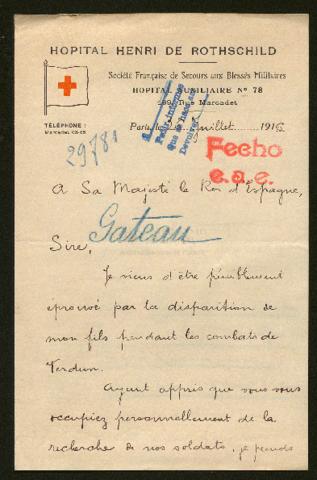 HOPITAL HENRI DE ROTHSCHILD
Société Française de Secours aux Blessés Militaires
HOPITAL AUXILIAIRE N° 78
189, Rue Marcadet
TÉLÉPHONE :
Marcadet
Paris, le juillet 1916
29781
Fecho
e.a.e.
A Sa Majesté le Roi d'Espagne,
Gateau
Sire,
Je viens d'être péniblement
éprouvé par la disparition de
mon fils pendant les combats de
Verdun.
Ayant appris que vous vous
occupiez personnellement de la
recherche de nos soldats, je prends